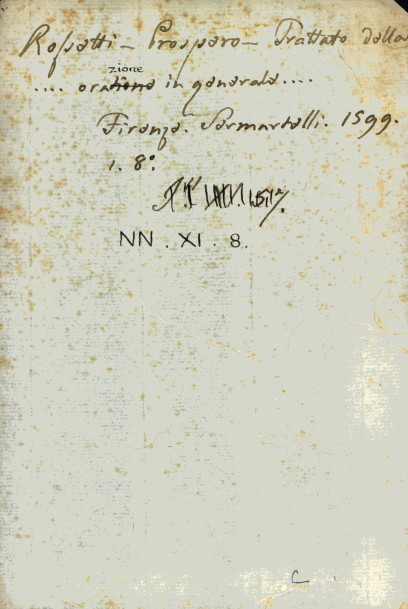 Rossetti – Prospero – Trattato della
zione
.... oratione in generale ....
Firenze. Sermartelli. 1599.
1. 8°.
NN . XI . 8.
C